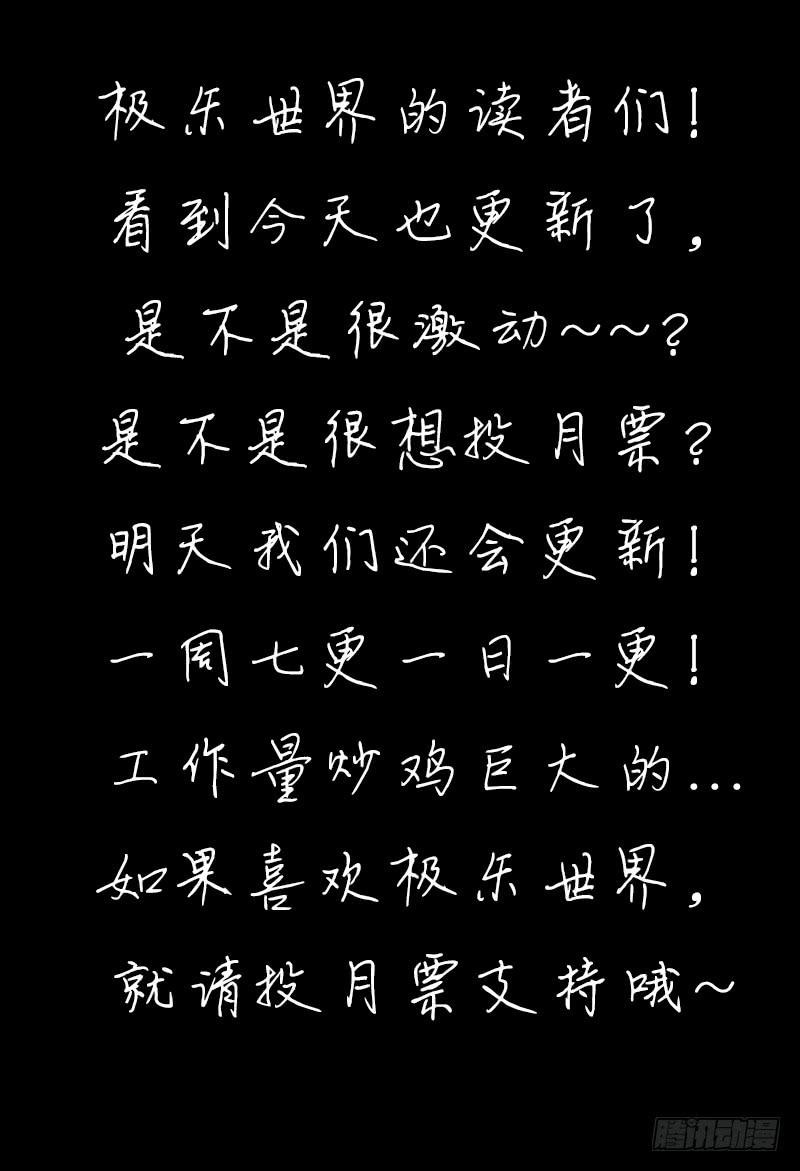 极乐世界的读者们!
看到今天也更新了,
是不是很激动~~?
是不是很想投月票?
明天我们还会更新!
一周七更一日一更!
工作量炒鸡巨大的...
如果喜欢极乐世界,
就请投月票支持哦~
腾讯动漫